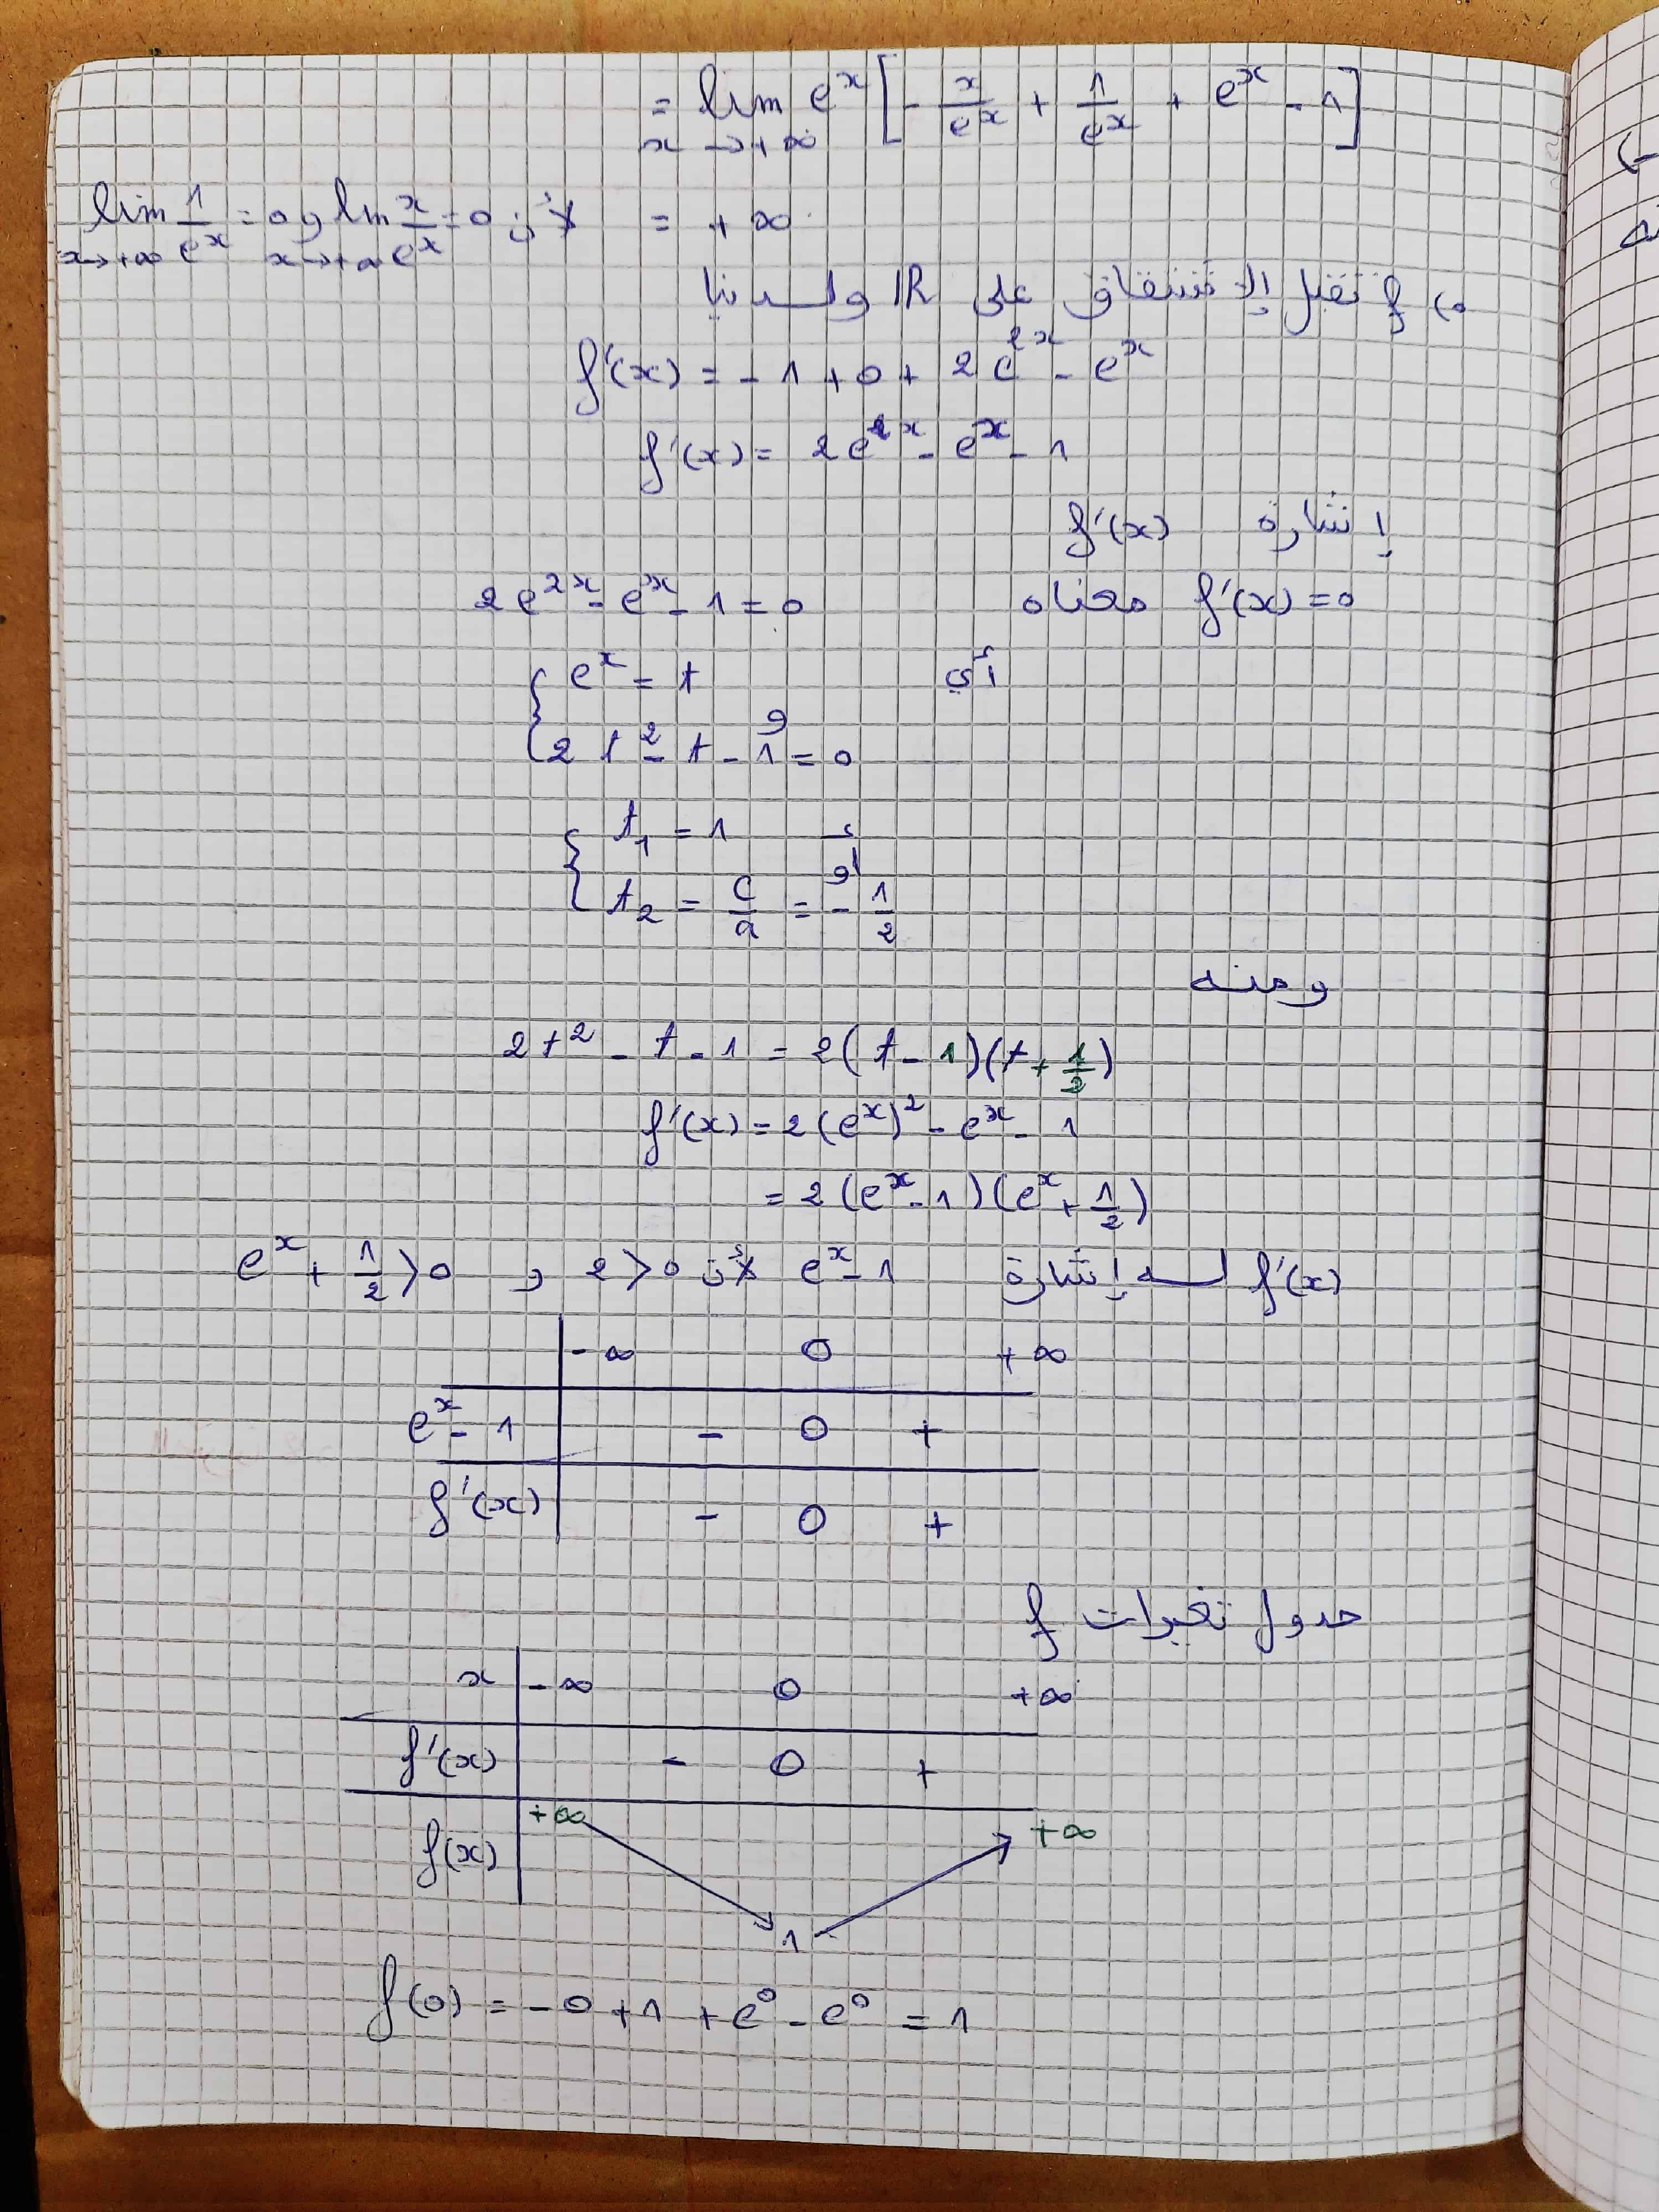 = lim x→+∞ e^x [ - x/e^x + 1/e^x + e^x - 1 ]
= +∞ لأن lim x→+∞ x/e^x = 0 و lim x→+∞ 1/e^x = 0
f تقبل الإشتقاق على IR ولدينا
f'(x) = - 1 + 0 + 2e^2x - e^x
f'(x) = 2e^2x - e^x - 1
إشارة f'(x)
f'(x) = 0 معناه 2e^2x - e^x - 1 = 0
أي { e^x = t
و
2t^2 - t - 1 = 0
{ t1 = 1
أو
t2 = c/a = - 1/2
ومنه
2t^2 - t - 1 = 2(t - 1)(t + 1/2)
f'(x) = 2(e^x)^2 - e^x - 1
= 2(e^x - 1)(e^x + 1/2)
f'(x) لـه إشارة e^x - 1 لأن 2 > 0 و e^x + 1/2 > 0
-∞ 0 +∞
e^x - 1 - 0 +
f'(x) - 0 +
جدول تغيرات f
x -∞ 0 +∞
f'(x) - 0 +
f(x) +∞ 1 +∞
f(0) = -0 + 1 + e^0 - e^0 = 1